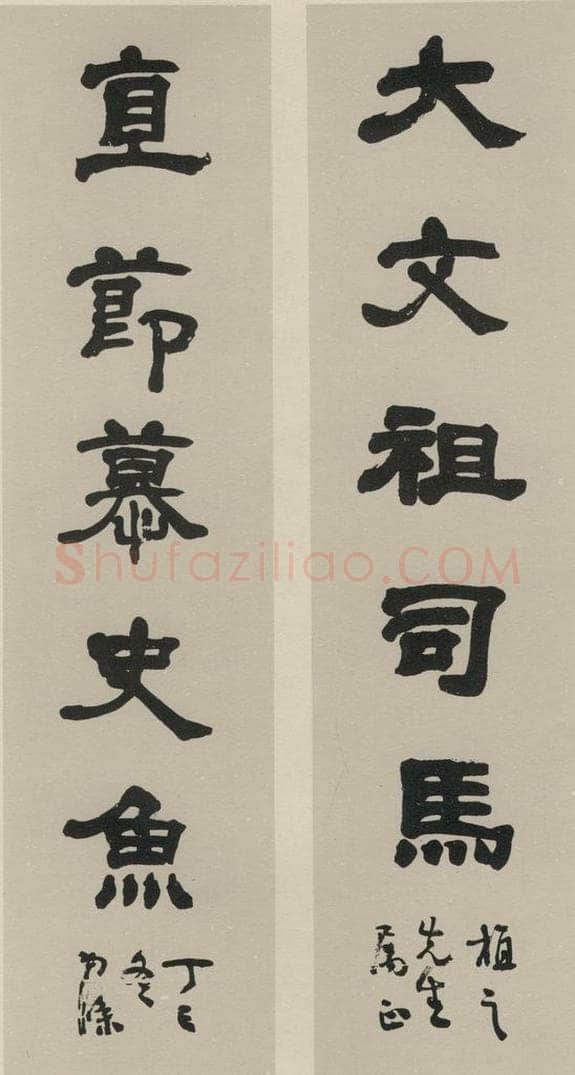 大文祖司馬
植之
先生
属正
直節慕史魚
丁巳
冬
Shufaziliao.COM